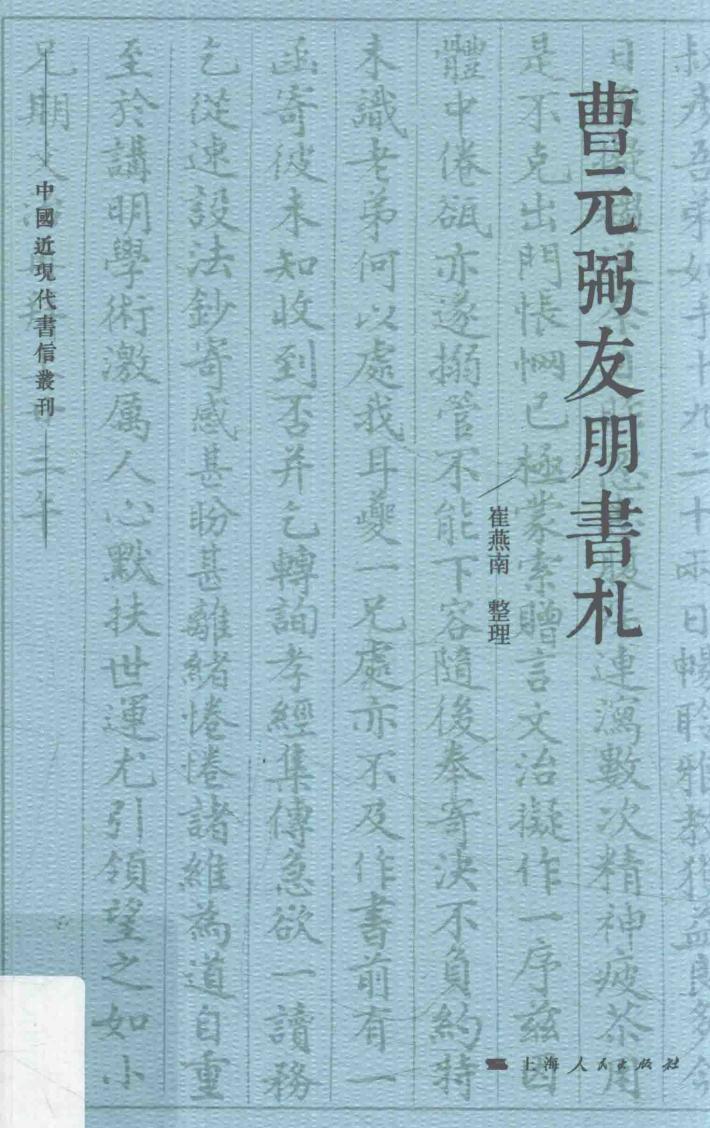 曹元弼友朋書札
崔燕南 整理
中國近現代書信叢刊
上海人民出版社
叔彥吾弟如手十九二十兩日暢聆雅教獲益良多今
日
連瀉數次精神疲苶用
是不克出門悵惘已極蒙索贈言文治擬作一序茲因
體中倦甌亦遂搦管不能下容隨後奉寄決不負約特
未識老弟何以處我耳夔一兄處亦不及作書前有一
函寄彼未知收到否并乞轉詢孝經集傳急欲一讀務
乞從速設法鈔寄感甚盼甚離緒惓惓諸維為道自重
至於講明學術激厲人心默扶世運尤引領望之如小
兄期
三年